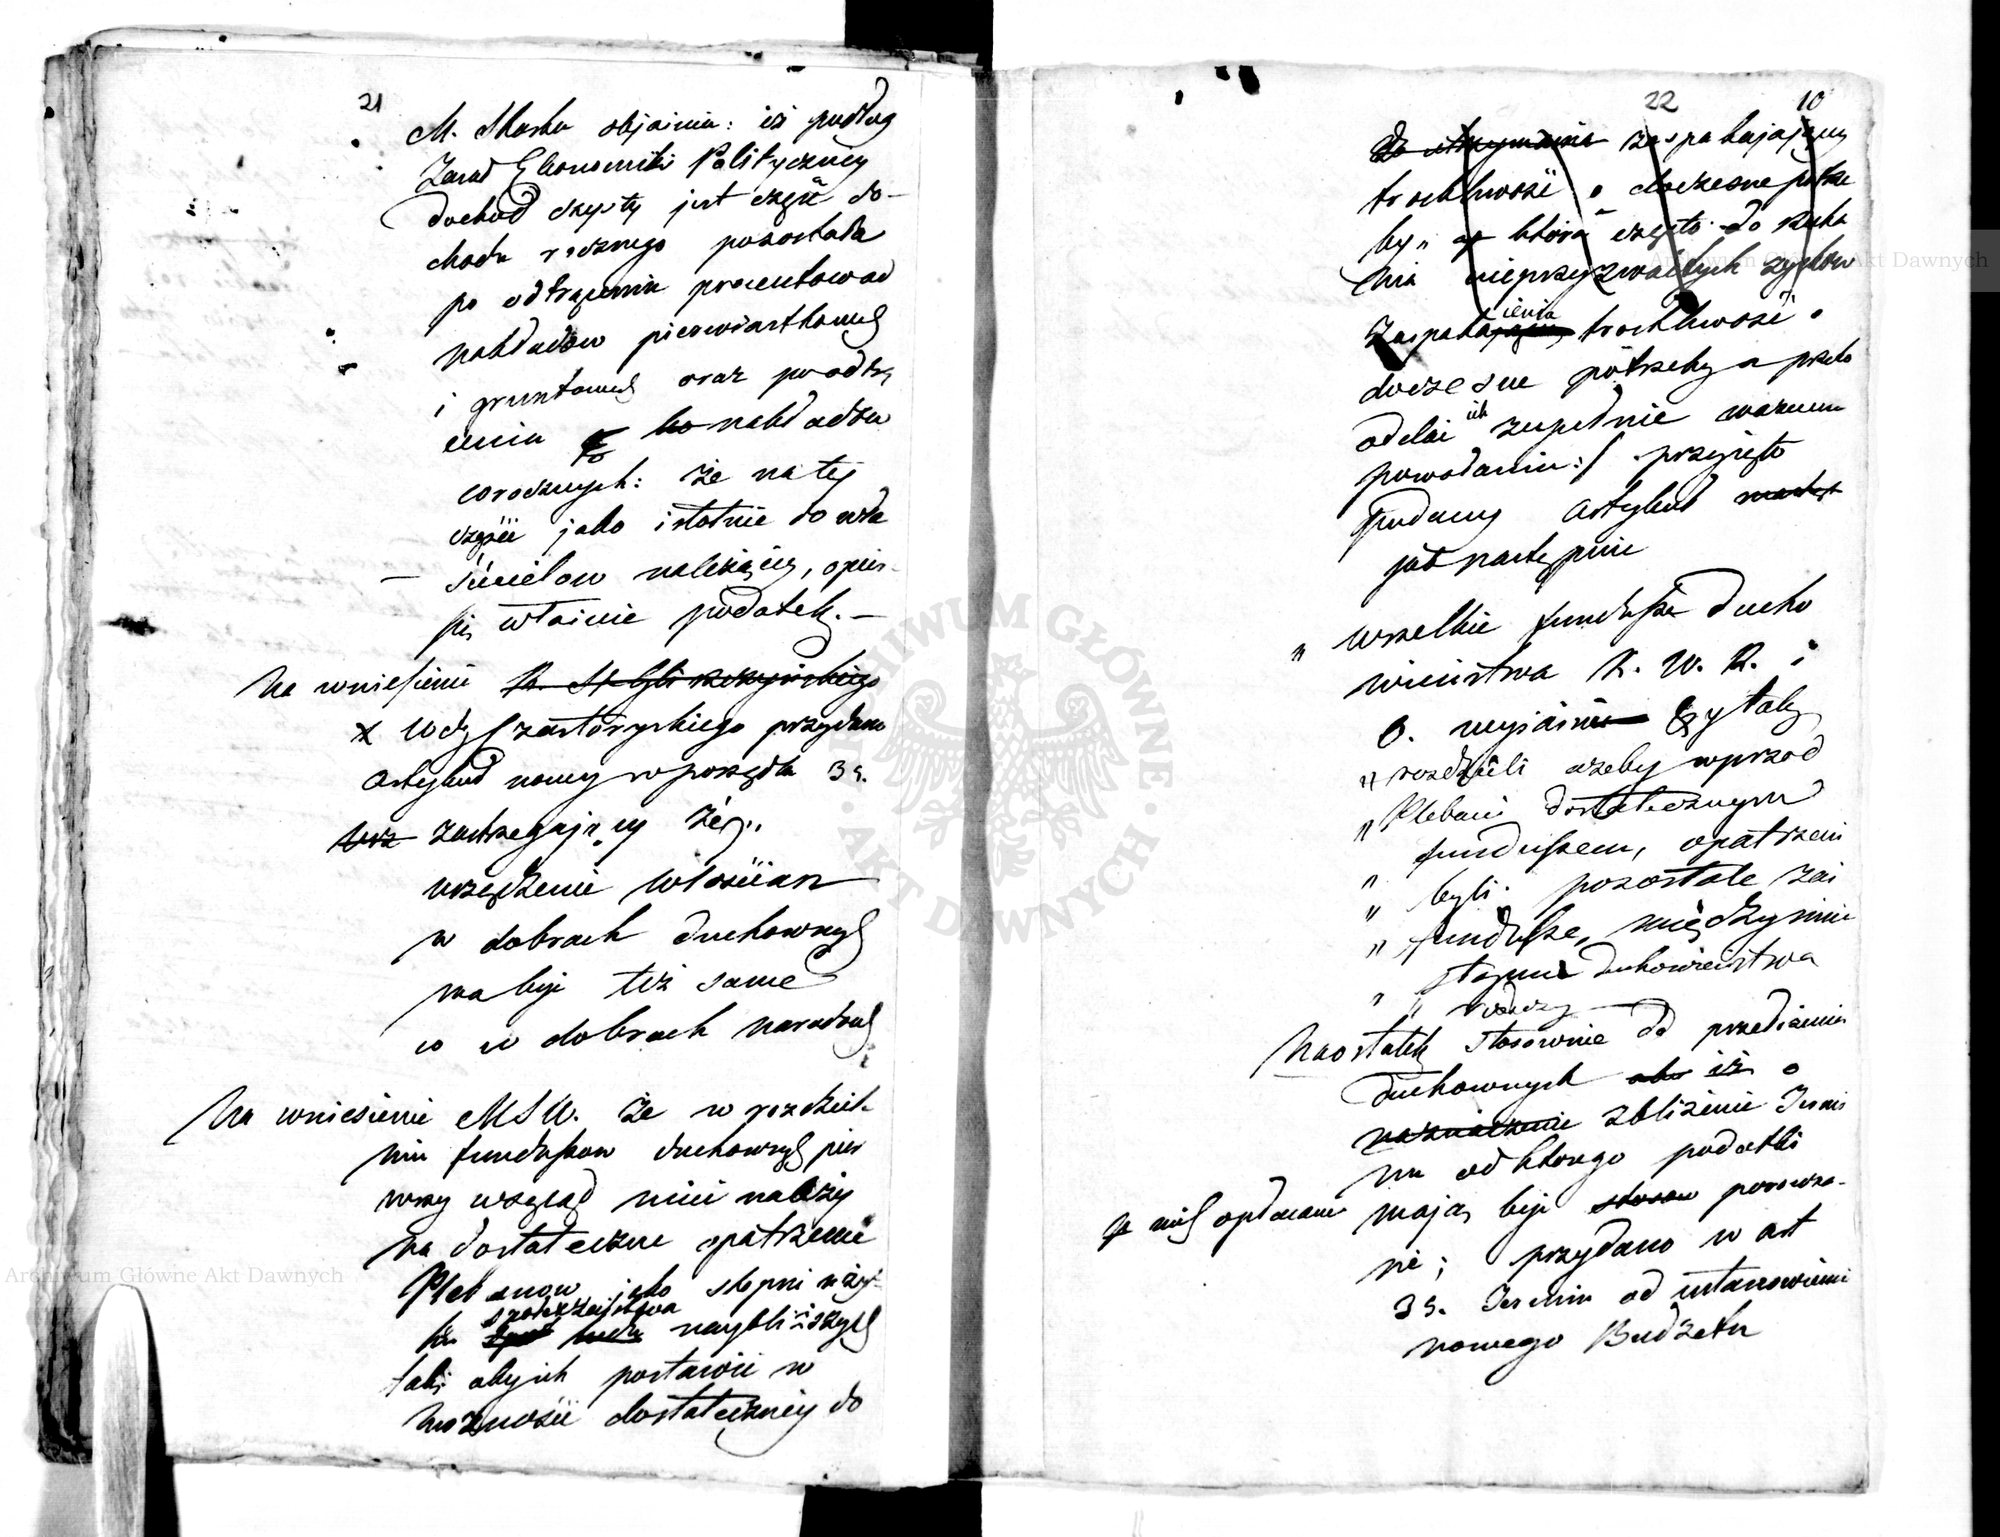 21
M. Skarbu objaśnia: iż podług
Zasad Ekonomiki Polityczney
dochod czysty jest część do-
chodu rocznego pozostała
po odtrąceniu procentow od
nakładow pierwiastkowych
i gruntowych oraz po odtrą
ceniu nakładow
corocznych: że na tej
części jako istotnie do wła
ścicielow należącey, opier-
się właśnie podatek. —
Na wniesienie
X Wdy Czartoryskiego przydano
Artykuł nowy w porządku 35.
zastrzegający że „
urządzenie włościan
w dobrach duchownych
ma być też same
co w dobrach narodowych
Na wniesienie MSW. że w rozdziele-
niu funduszow duchownych pier
wszy wzgląd mieć należy
na dostateczne opatrzenie
Plebanow jako stopni użyt-
ku społeczeństwa naybliższych
tak, aby ich postawić w
możności dostateczniey do
22 10
do utrzymania zaspakajający
troskliwość o doczesne potrze
by, która często do szuka
nia nieprzyzwoitych zyskow
zaspakajenia troskliwości o
doczesne potrzeby a przeto
oddać ich zupełnie ważnemu
powołaniu:/ przyjęto
Podany Artykuł
jak następuie
„ wszelkie fundusze Ducho
wieństwa K. W. R. i
O. wyjaśni
„ rozdzieli ażeby wprzod
„ Plebani dostatecznym
funduszem, opatrzeni
„ byli. pozostałe zaś
„ fundusze, między inne
„ stopnie duchowieństwa
„ rozłoży —
Naostatek stosownie do przedstawienia
duchownych iż o
zbliżenie Termi
nu od ktorego podatki
z nich opłacane mają być porowna-
ne; przydano w art
35. Termin od ustanowienia
nowego Budżetu
ARCHIWUM GŁÓWNE AKT DAWNYCH
Archiwum Główne Akt Dawnych
Archiwum Główne Akt Dawnych